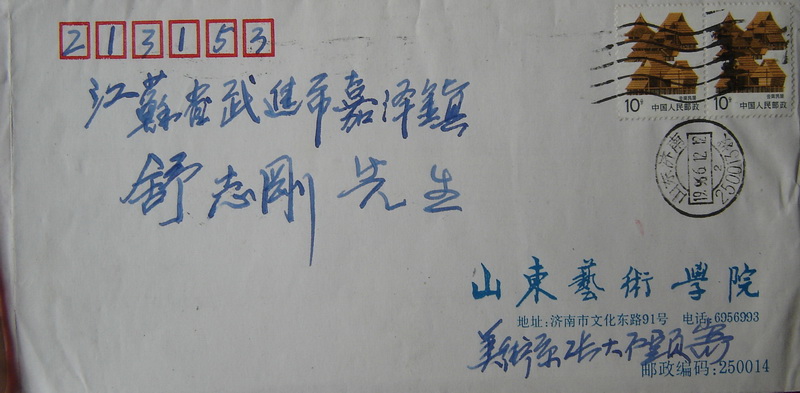 213153
江蘇省武進市嘉泽鎮
舒志剛先生
10分
中国人民邮政
10分
中国人民邮政
山东济南
250014
山東藝術學院
地址:济南市文化东路91号 电话:6956993
美術系 张大石頭寄
邮政编码:250014